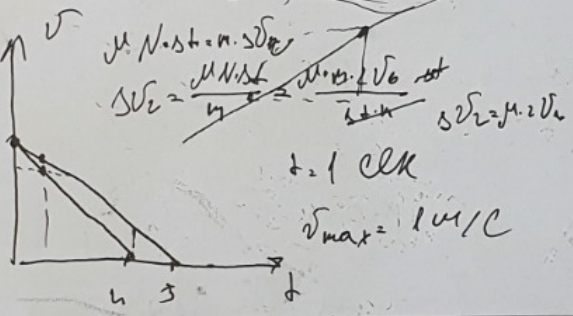 υ
μ N·Δt = m·Δυ
Δυ₂ = μN·Δt / m = μ·m·2υ₀ Δt / Δt·m
Δυ₂ = μ·2υ₀
t = 1 сек
υmax = 1 м/с
4 5 t